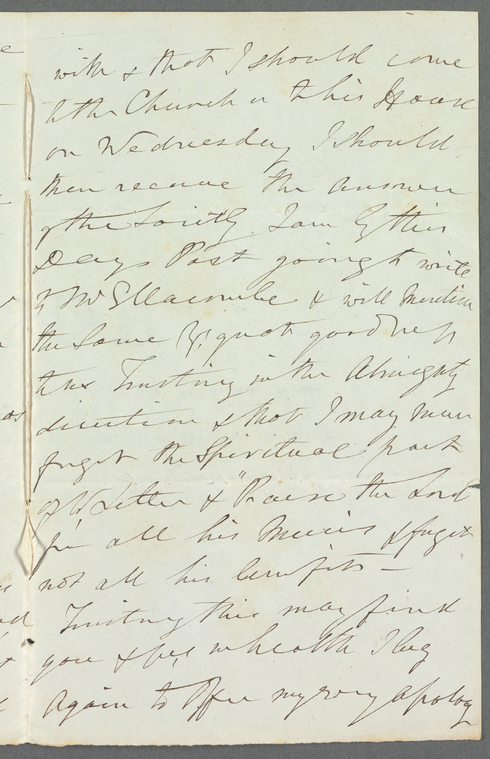 with & that I should come
to the Church or to his House
on Wednesday I should
then receive the answer
of the Society. I am by this
Days Post going to write
to Mr Ellacombe & will mention
the Same Yr. great goodness
thus Trusting in the Almighty
direction & that I may never
forget the Spiritual part
of Yr Letter & "Praise the Lord
for all his Mercies & forget
not all his benefits —
Trusting this may find
you & in health I beg
Again to Offer my apology